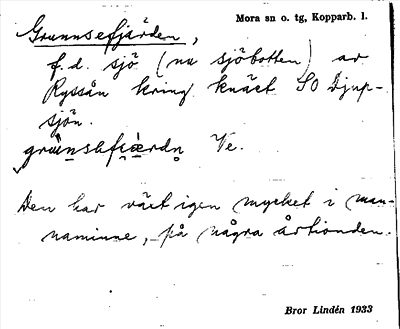 Mora sn o. tg, Kopparb. l.
Grunnsefjärden,
f. d. sjö (nu sjöbotten) av
Ryssån kring knäet SO Djup-
sjön.
Ve.
Den har växt igen mycket i man-
naminne, på några årtionden.
Bror Lindén 1933